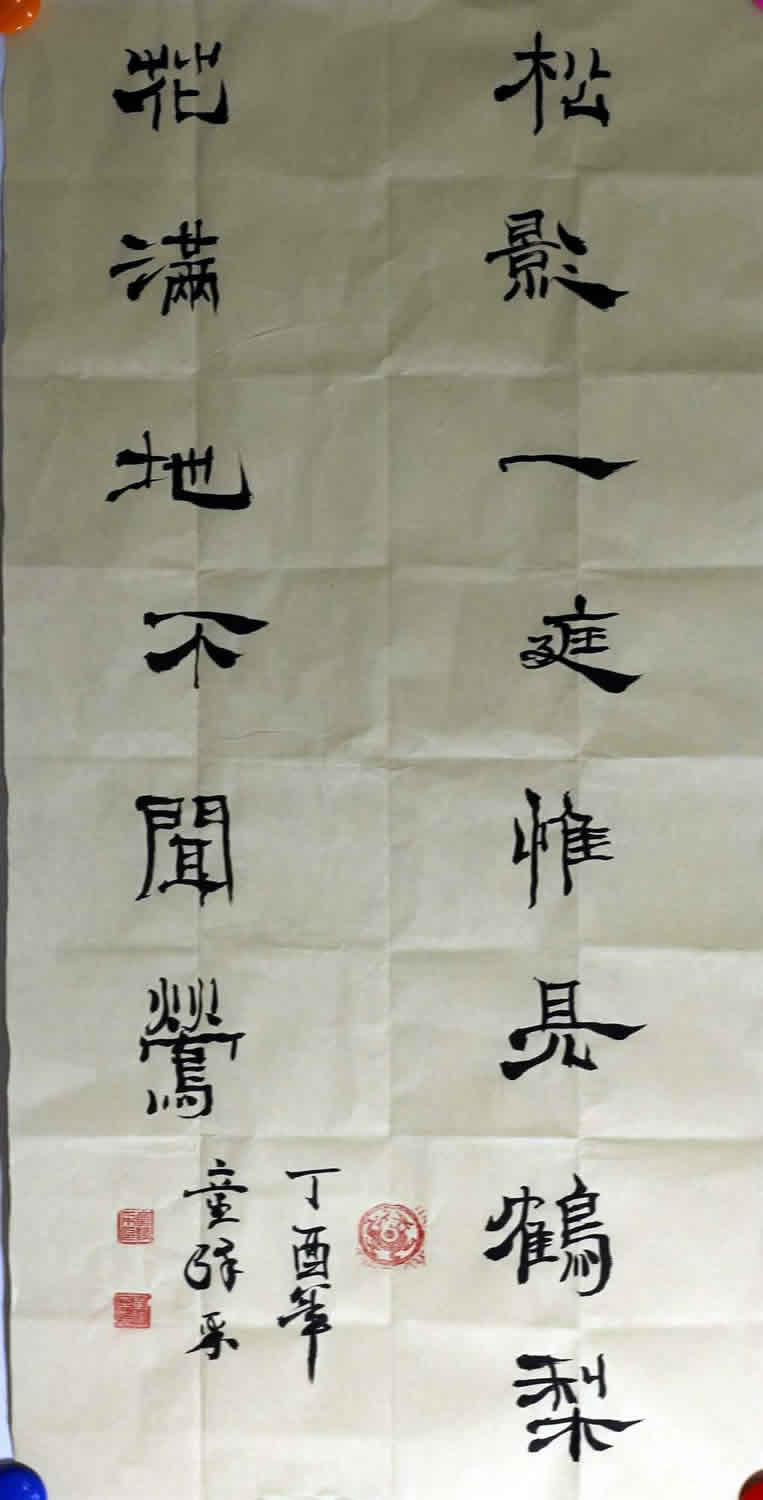 松影一庭惟見鶴梨
花滿地不聞鶯
丁酉筆
童